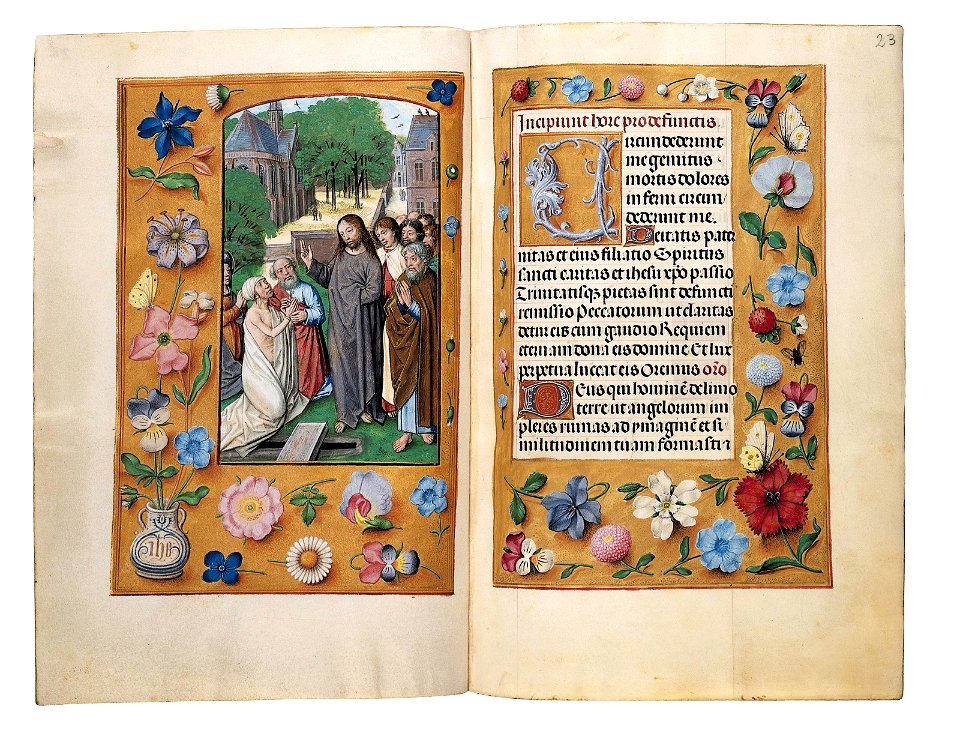 ihs
23
Incipiunt hore pro defunctis.
Circundederunt
me gemitus
mortis dolores
inferni circun
dederunt me.
Deitatis pater
nitas et eius filiatio Spiritus
sancti caritas et ihesu xp̄o passio
Trinitatisqz pietas sint defuncti
remissio Peccatorum ut claritas
detur eis cum gaudio Requiem
eternam dona eis domine. Et lux
perpetua luceat eis Oremus or̄o
Deus qui hominē de limo
terre ut angelorum im
pleres ruinas ad ymaginē et si
militudinem tuam formasti ⁊